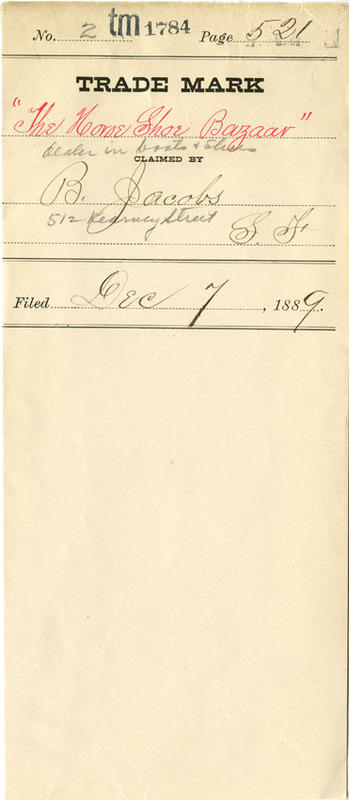 No. 2 tm 1784 Page 521
TRADE MARK
"The Home Shoe Bazaar"
dealer in boots & shoes
CLAIMED BY
B. Jacobs
512 Kearney Street S. F.
Filed Dec 7, 1889.